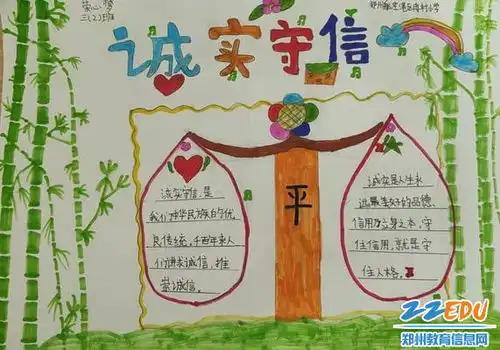 三(2)班
诚实守信
诚实守信,是
我们中华民族的优
良传统,千百年来人
们讲求诚信,推
崇诚信。
平
诚实是人生永
远最美好的品德,
信用乃立身之本,守
住信用,就是守
住人格。
ZZEDU
郑州教育信息网